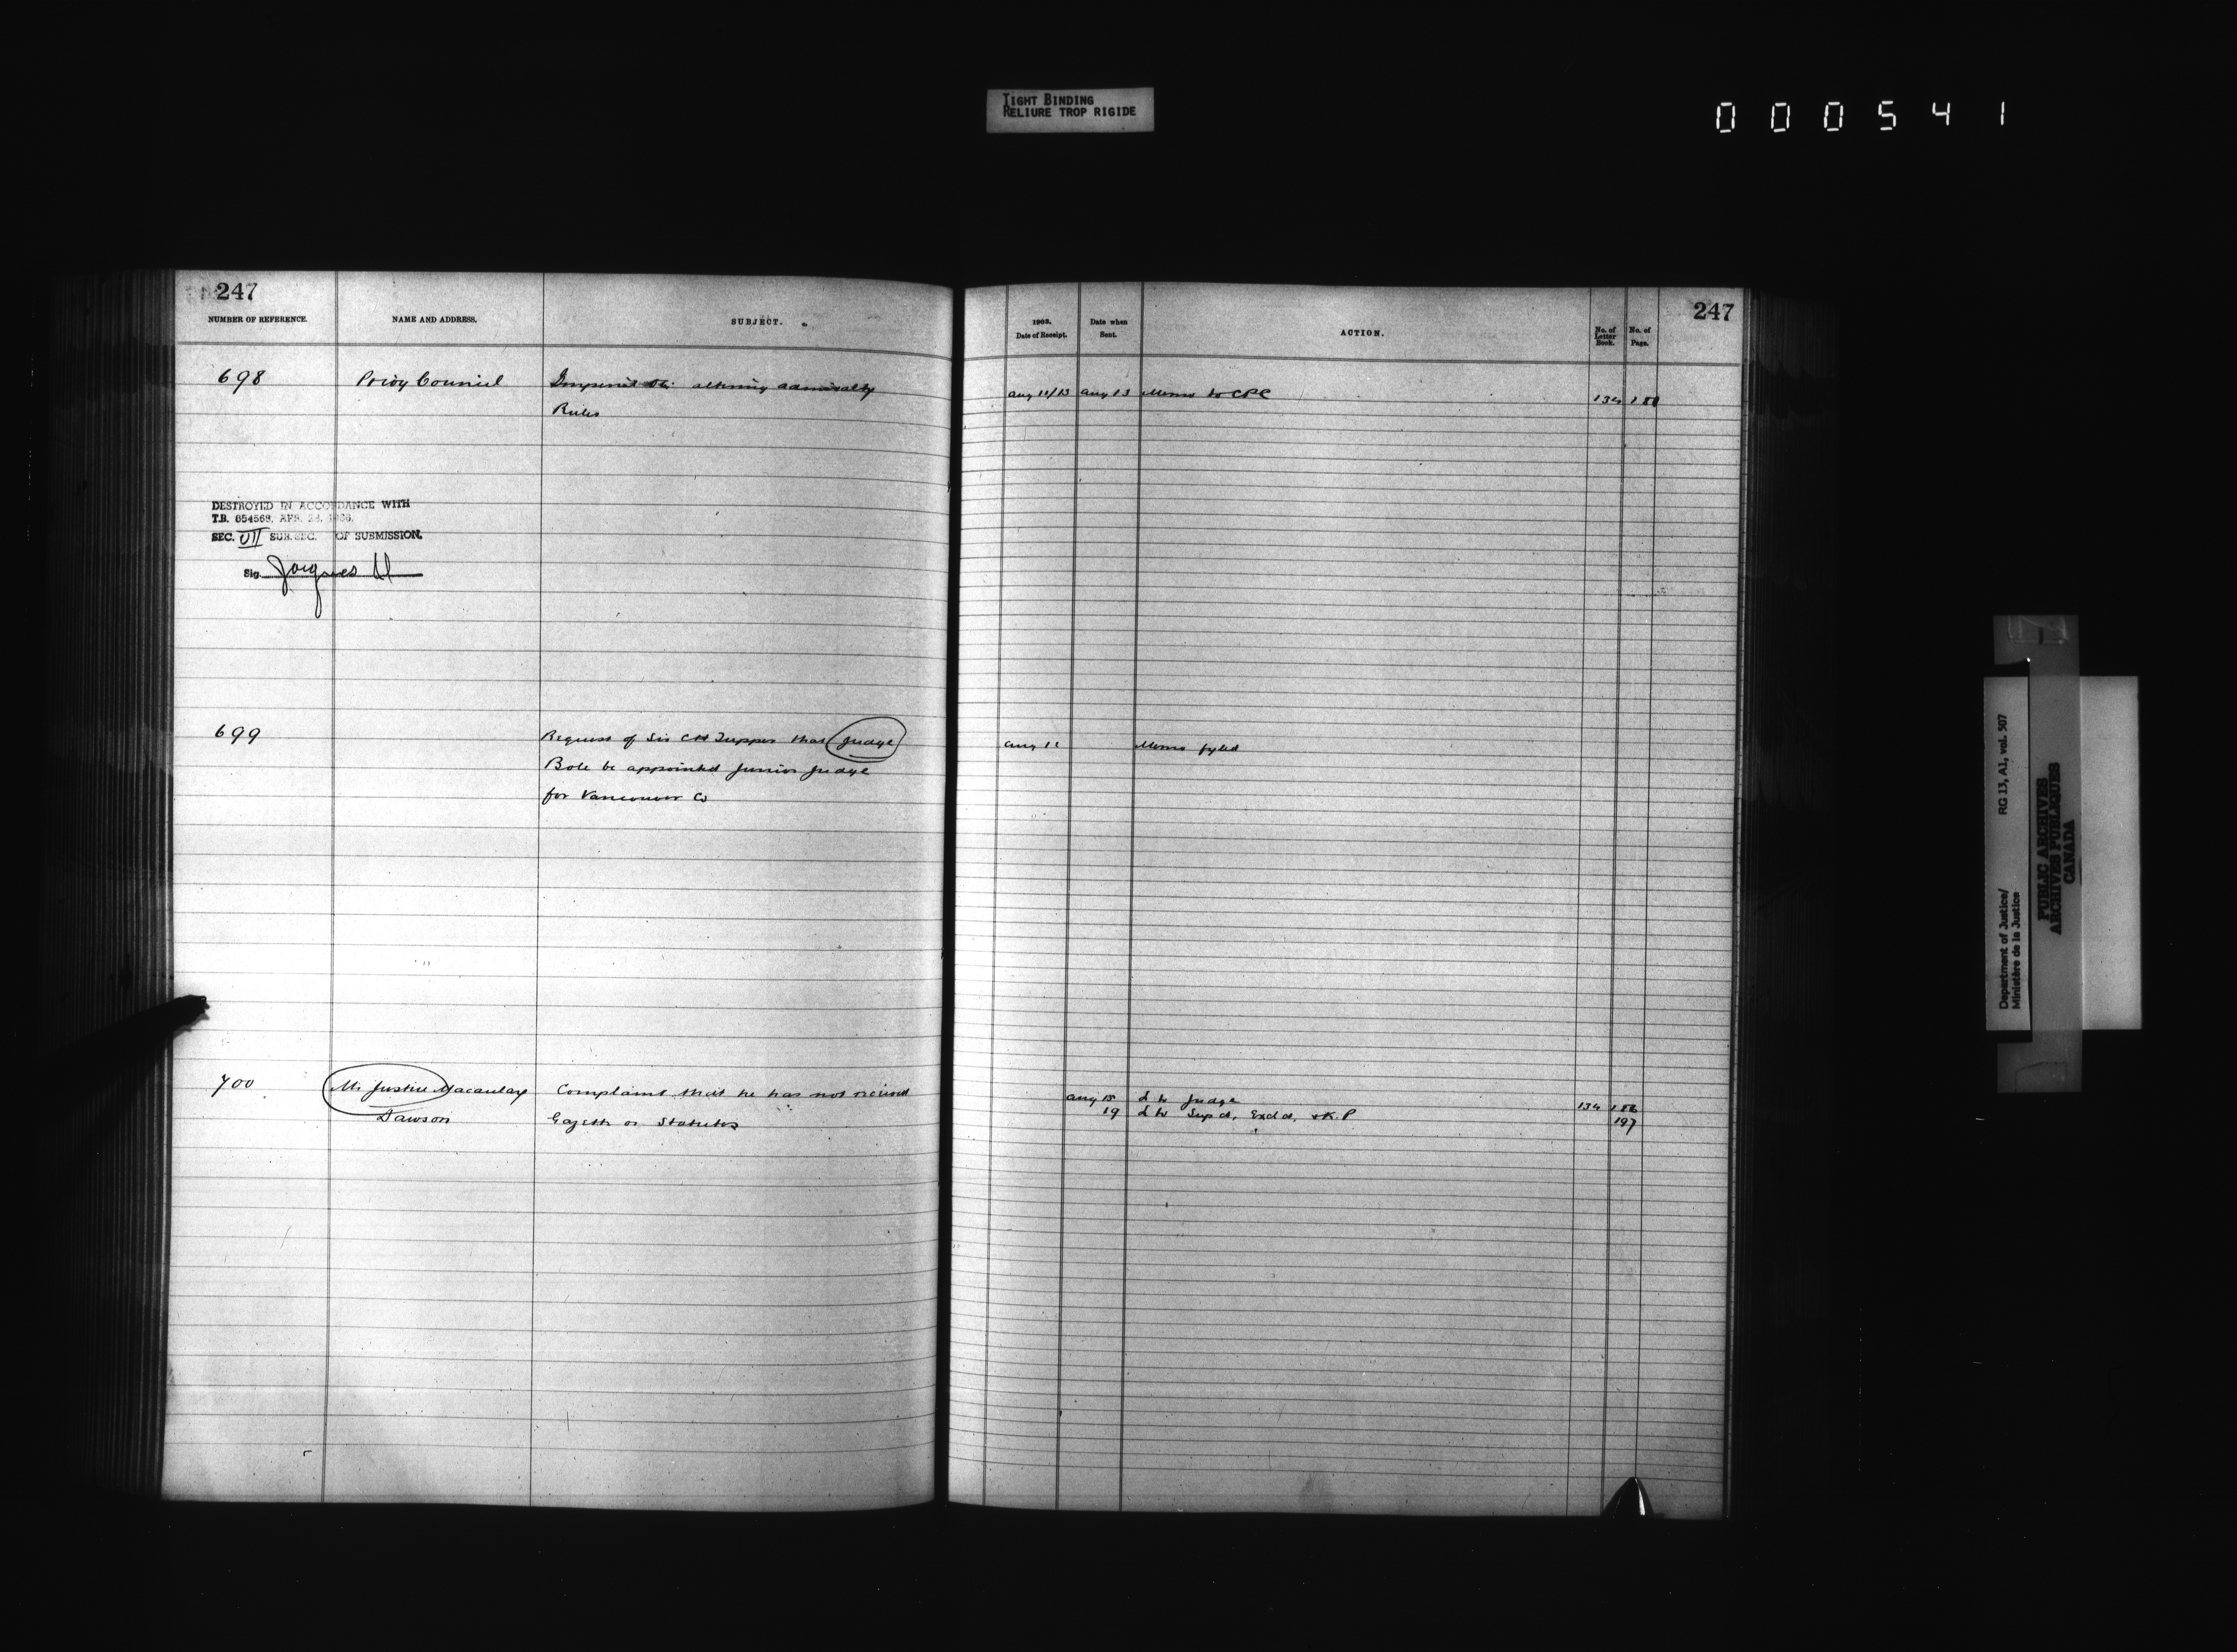 TIGHT BINDING
RELIURE TROP RIGIDE
000541
247
NUMBER OF REFERENCE.
NAME AND ADDRESS.
SUBJECT.
698
Privy Council
Imperial O.C. altering admiralty
Rules
DESTROYED IN ACCORDANCE WITH
T.B. 654568, APR.
SEC. VII SUB.SEC. OF SUBMISSION.
Sig. Jacques
699
Request of Sir CH Tupper that Judge
Bole be appointed Junior Judge
for Vancouver Co
700
Mr Justice Macaulay
Dawson
Complains that he has not received
Gazette or Statutes
247
1903.
Date of Receipt.
Date when
Sent.
ACTION.
No. of
Letter
Book.
No. of
Page.
Aug 11/13 Aug 13 Memo to CPC 134
Aug 11 Memo fyled
Aug 15 L to Judge 134 186
19 L to Sup ct, Exch ct, & K.P
197
Department of Justice/ RG 13, A1, vol. 507
Ministère de la Justice
PUBLIC ARCHIVES
ARCHIVES PUBLIQUES
CANADA